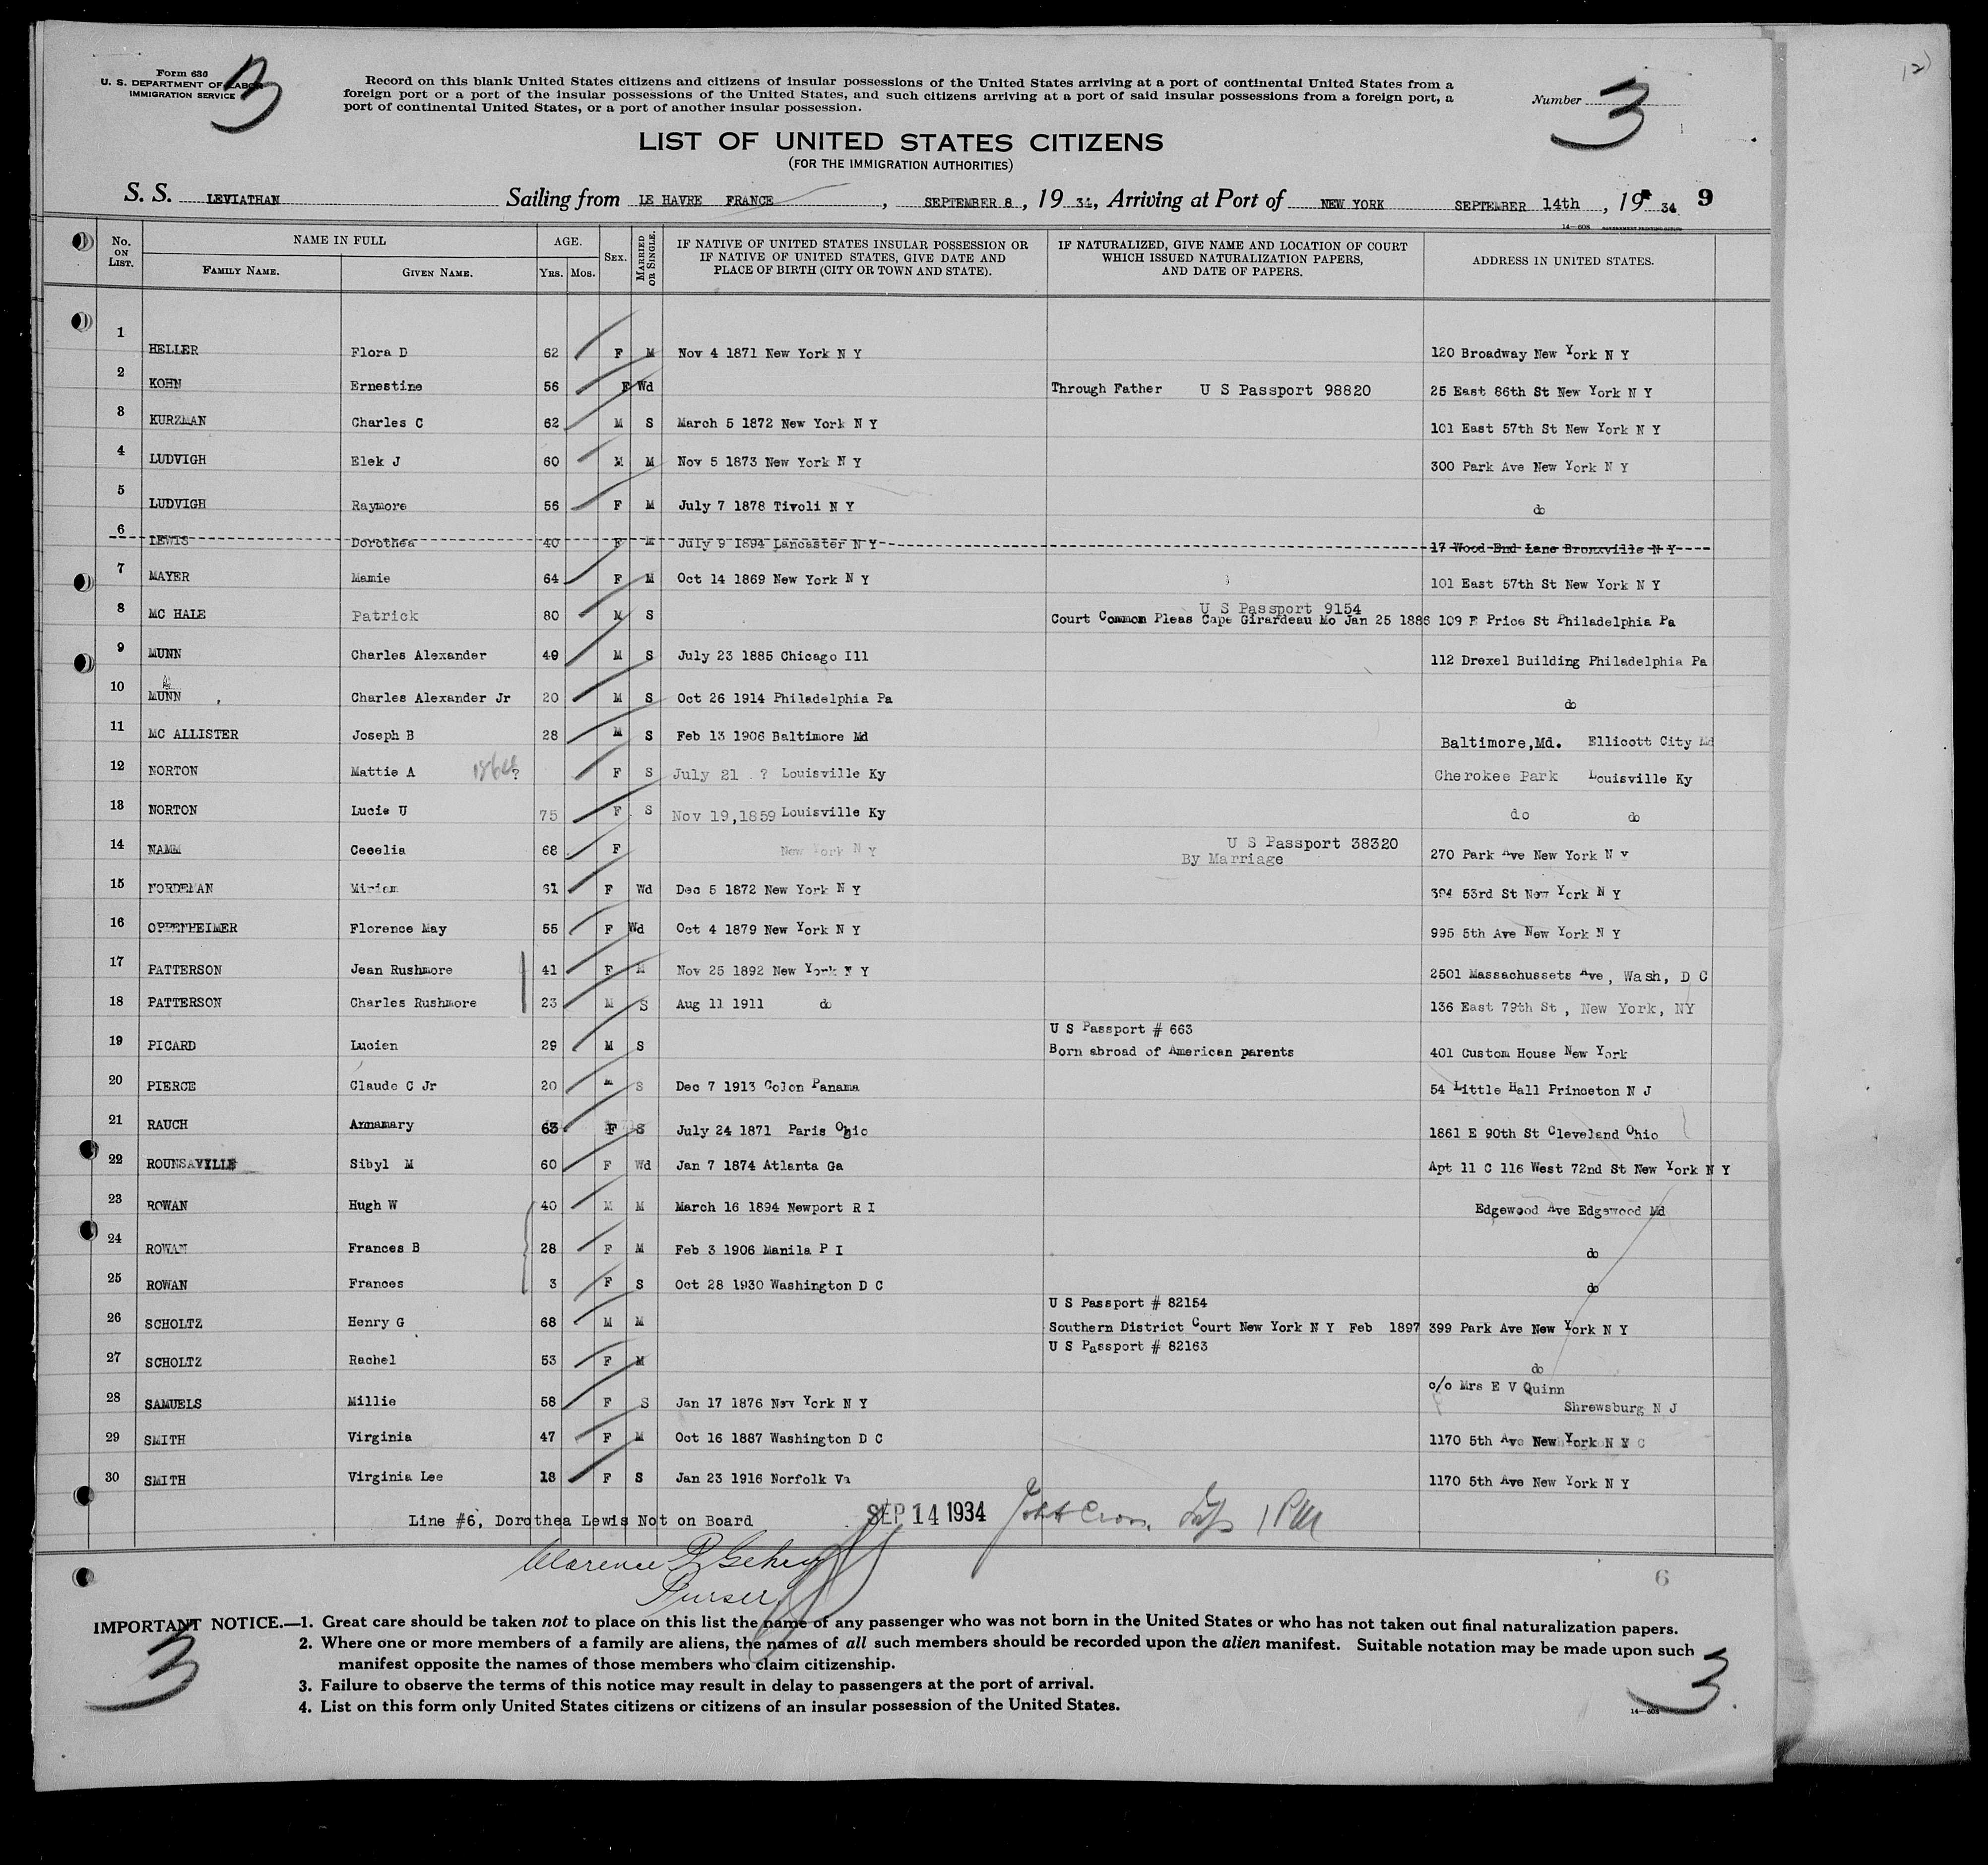 Form 630
U. S. DEPARTMENT OF LABOR
IMMIGRATION SERVICE
3
Record on this blank United States citizens and citizens of insular possessions of the United States arriving at a port of continental United States from a
foreign port or a port of the insular possessions of the United States, and such citizens arriving at a port of said insular possessions from a foreign port, a
port of continental United States, or a port of another insular possession.
Number 3
LIST OF UNITED STATES CITIZENS
(FOR THE IMMIGRATION AUTHORITIES)
S. S. LEVIATHAN Sailing from LE HAVRE FRANCE, SEPTEMBER 8, 1934, Arriving at Port of NEW YORK SEPTEMBER 14th, 19 34 9
14—608 GOVERNMENT PRINTING OFFICE
No. ON LIST. NAME IN FULL FAMILY NAME. GIVEN NAME. AGE. YRS. MOS. SEX. MARRIED OR SINGLE. IF NATIVE OF UNITED STATES INSULAR POSSESSION OR IF NATIVE OF UNITED STATES, GIVE DATE AND PLACE OF BIRTH (CITY OR TOWN AND STATE). IF NATURALIZED, GIVE NAME AND LOCATION OF COURT WHICH ISSUED NATURALIZATION PAPERS, AND DATE OF PAPERS. ADDRESS IN UNITED STATES.
1 HELLER Flora D 62 F M Nov 4 1871 New York N Y 120 Broadway New York N Y
2 KOHN Ernestine 56 F Wd Through Father U S Passport 98820 25 East 86th St New York N Y
3 KURZMAN Charles C 62 M S March 5 1872 New York N Y 101 East 57th St New York N Y
4 LUDVIGH Elek J 60 M M Nov 5 1873 New York N Y 300 Park Ave New York N Y
5 LUDVIGH Raymore 56 F M July 7 1878 Tivoli N Y do
6 LEWIS Dorothea 40 F M July 9 1894 Lancaster N Y 17 Wood End Lane Bronxville N Y
7 MAYER Mamie 64 F M Oct 14 1869 New York N Y 101 East 57th St New York N Y
U S Passport 9154
8 MC HALE Patrick 80 M S Court Common Pleas Cape Girardeau Mo Jan 25 1886 109 E Price St Philadelphia Pa
9 MUNN Charles Alexander 49 M S July 23 1885 Chicago Ill 112 Drexel Building Philadelphia Pa
10 MUNN Charles Alexander Jr 20 M S Oct 26 1914 Philadelphia Pa do
11 MC ALLISTER Joseph B 28 M S Feb 13 1906 Baltimore Md Baltimore, Md. Ellicott City Md
12 NORTON Mattie A ? F S July 21 ? Louisville Ky Cherokee Park Louisville Ky
13 NORTON Lucie U 75 F S Nov 19,1859 Louisville Ky do do
U S Passport 38320
14 NAMM Cecelia 68 F New York N Y By Marriage 270 Park Ave New York N Y
15 NORDEMAN Miriam 61 F Wd Dec 5 1872 New York N Y 394 53rd St New York N Y
16 OPPENHEIMER Florence May 55 F Wd Oct 4 1879 New York N Y 995 5th Ave New York N Y
17 PATTERSON Jean Rushmore 41 F M Nov 25 1892 New York N Y 2501 Massachussets Ave, Wash, D C
18 PATTERSON Charles Rushmore 23 M S Aug 11 1911 do 136 East 79th St, New York, NY
U S Passport # 663
19 PICARD Lucien 29 M S Born abroad of American parents 401 Custom House New York
20 PIERCE Claude C Jr 20 M S Dec 7 1913 Colon Panama 54 Little Hall Princeton N J
21 RAUCH Annamary 63 F S July 24 1871 Paris Ohio 1861 E 90th St Cleveland Ohio
22 ROUNSAVILLE Sibyl M 60 F Wd Jan 7 1874 Atlanta Ga Apt 11 C 116 West 72nd St New York N Y
23 ROWAN Hugh W 40 M M March 16 1894 Newport R I Edgewood Ave Edgewood Md
24 ROWAN Frances B 28 F M Feb 3 1906 Manila P I do
25 ROWAN Frances 3 F S Oct 28 1930 Washington D C do
U S Passport # 82154
26 SCHOLTZ Henry G 68 M M Southern District Court New York N Y Feb 1897 399 Park Ave New York N Y
U S Passport # 82163
27 SCHOLTZ Rachel 53 F M do
c/o Mrs E V Quinn
28 SAMUELS Millie 58 F S Jan 17 1876 New York N Y Shrewsburg N J
29 SMITH Virginia 47 F M Oct 16 1887 Washington D C 1170 5th Ave New York N Y
30 SMITH Virginia Lee 18 F S Jan 23 1916 Norfolk Va 1170 5th Ave New York N Y
Line #6, Dorothea Lewis Not on Board SEP 14 1934
Clarence
Purser
6
IMPORTANT NOTICE.—1. Great care should be taken not to place on this list the name of any passenger who was not born in the United States or who has not taken out final naturalization papers.
2. Where one or more members of a family are aliens, the names of all such members should be recorded upon the alien manifest. Suitable notation may be made upon such
manifest opposite the names of those members who claim citizenship.
3. Failure to observe the terms of this notice may result in delay to passengers at the port of arrival.
4. List on this form only United States citizens or citizens of an insular possession of the United States.
3
3
14—608